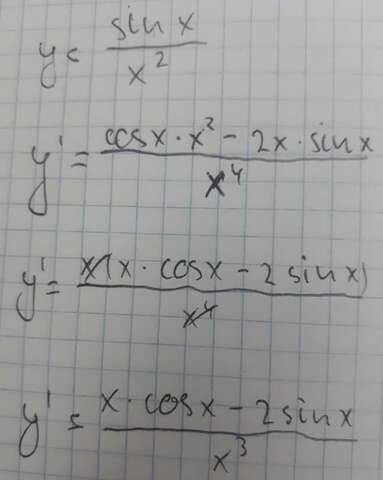 y = sin x / x²
y' = cos x · x² - 2x · sin x / x⁴
y' = x(x · cos x - 2 sin x) / x⁴
y' = x · cos x - 2 sin x / x³